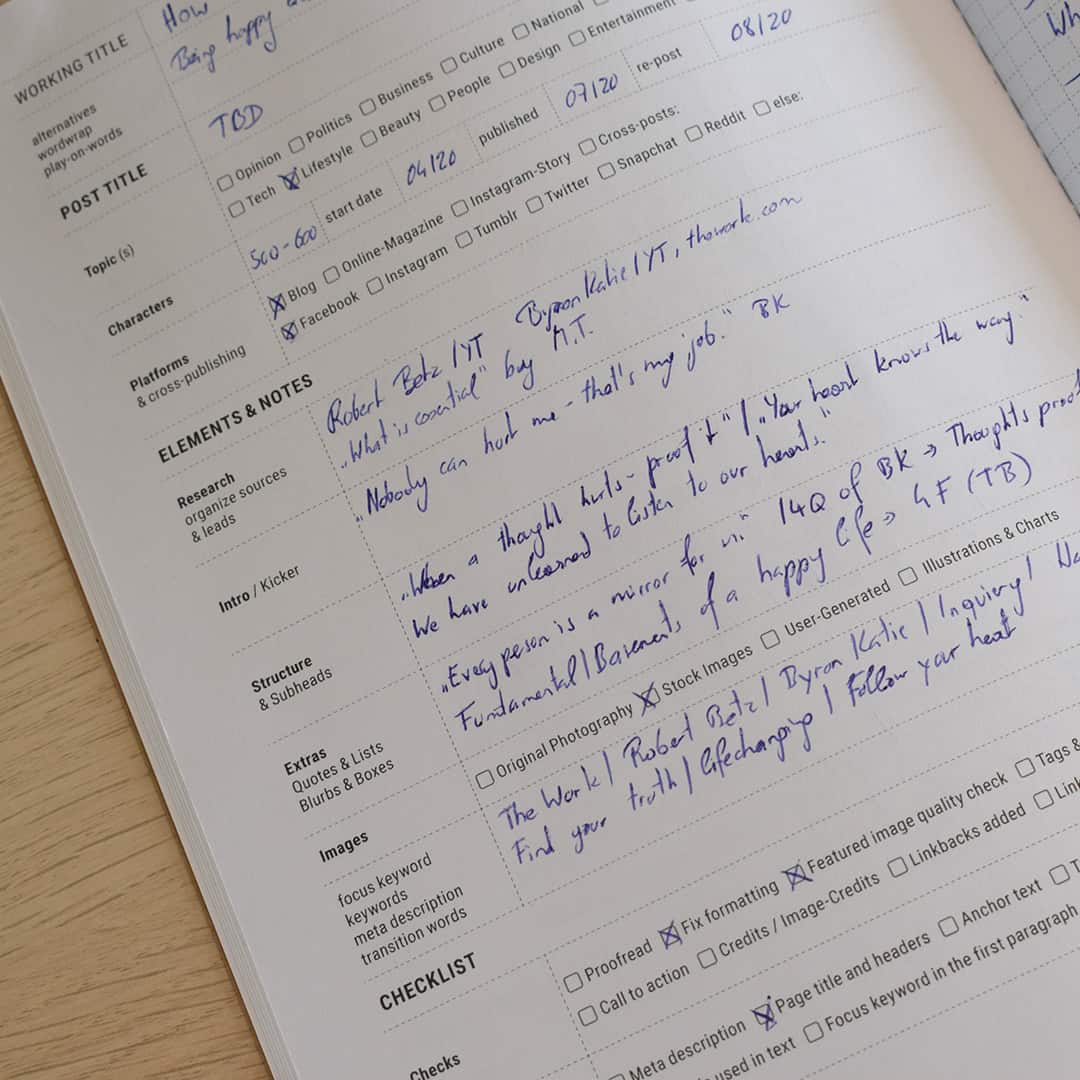 WORKING TITLE
How
alternatives
wordwrap
play-on-words
Being happy
POST TITLE
TBD
Topic (s)
☐ Opinion ☐ Politics ☐ Business ☐ Culture ☐ National
☐ Tech ☒ Lifestyle ☐ Beauty ☐ People ☐ Design ☐ Entertainment
Characters
500-600 start date 04/20 published 07/20 re-post 08/20
Platforms
& cross-publishing
☒ Blog ☐ Online-Magazine ☐ Instagram-Story ☐ Cross-posts:
☒ Facebook ☐ Instagram ☐ Tumblr ☐ Twitter ☐ Snapchat ☐ Reddit ☐ else:
ELEMENTS & NOTES
Research
organize sources
& leads
Robert Betz / YT Byron Katie / YT, thework.com
„What is essential" buy M.T.
Intro / Kicker
„Nobody can hurt me - that's my job." BK
Structure
& Subheads
„When a thought hurts - proof it" / „Your heart knows the way."
We have unlearned to listen to our hearts."
Extras
Quotes & Lists
Blurbs & Boxes
„Every person is a mirror for" / 4Q of BK → Thoughts
Fundamental / Basements of a happy life → 4F (TB)
Images
☐ Original Photography ☒ Stock Images ☐ User-Generated ☐ Illustrations & Charts
focus keyword
keywords
meta description
transition words
The Work / Robert Betz / Byron Katie / Inquiery /
Find your truth / lifechanging / Follow your heart
CHECKLIST
Checks
☐ Proofread ☒ Fix formatting ☒ Featured image quality check ☐ Tags &
☐ Call to action ☐ Credits / Image-Credits ☐ Linkbacks added ☐
Meta description ☒ Page title and headers ☐ Anchor text ☐
used in text ☐ Focus keyword in the first paragraph